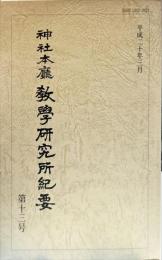 平成二十年三月
神社本廳 教學研究所紀要
第十三号